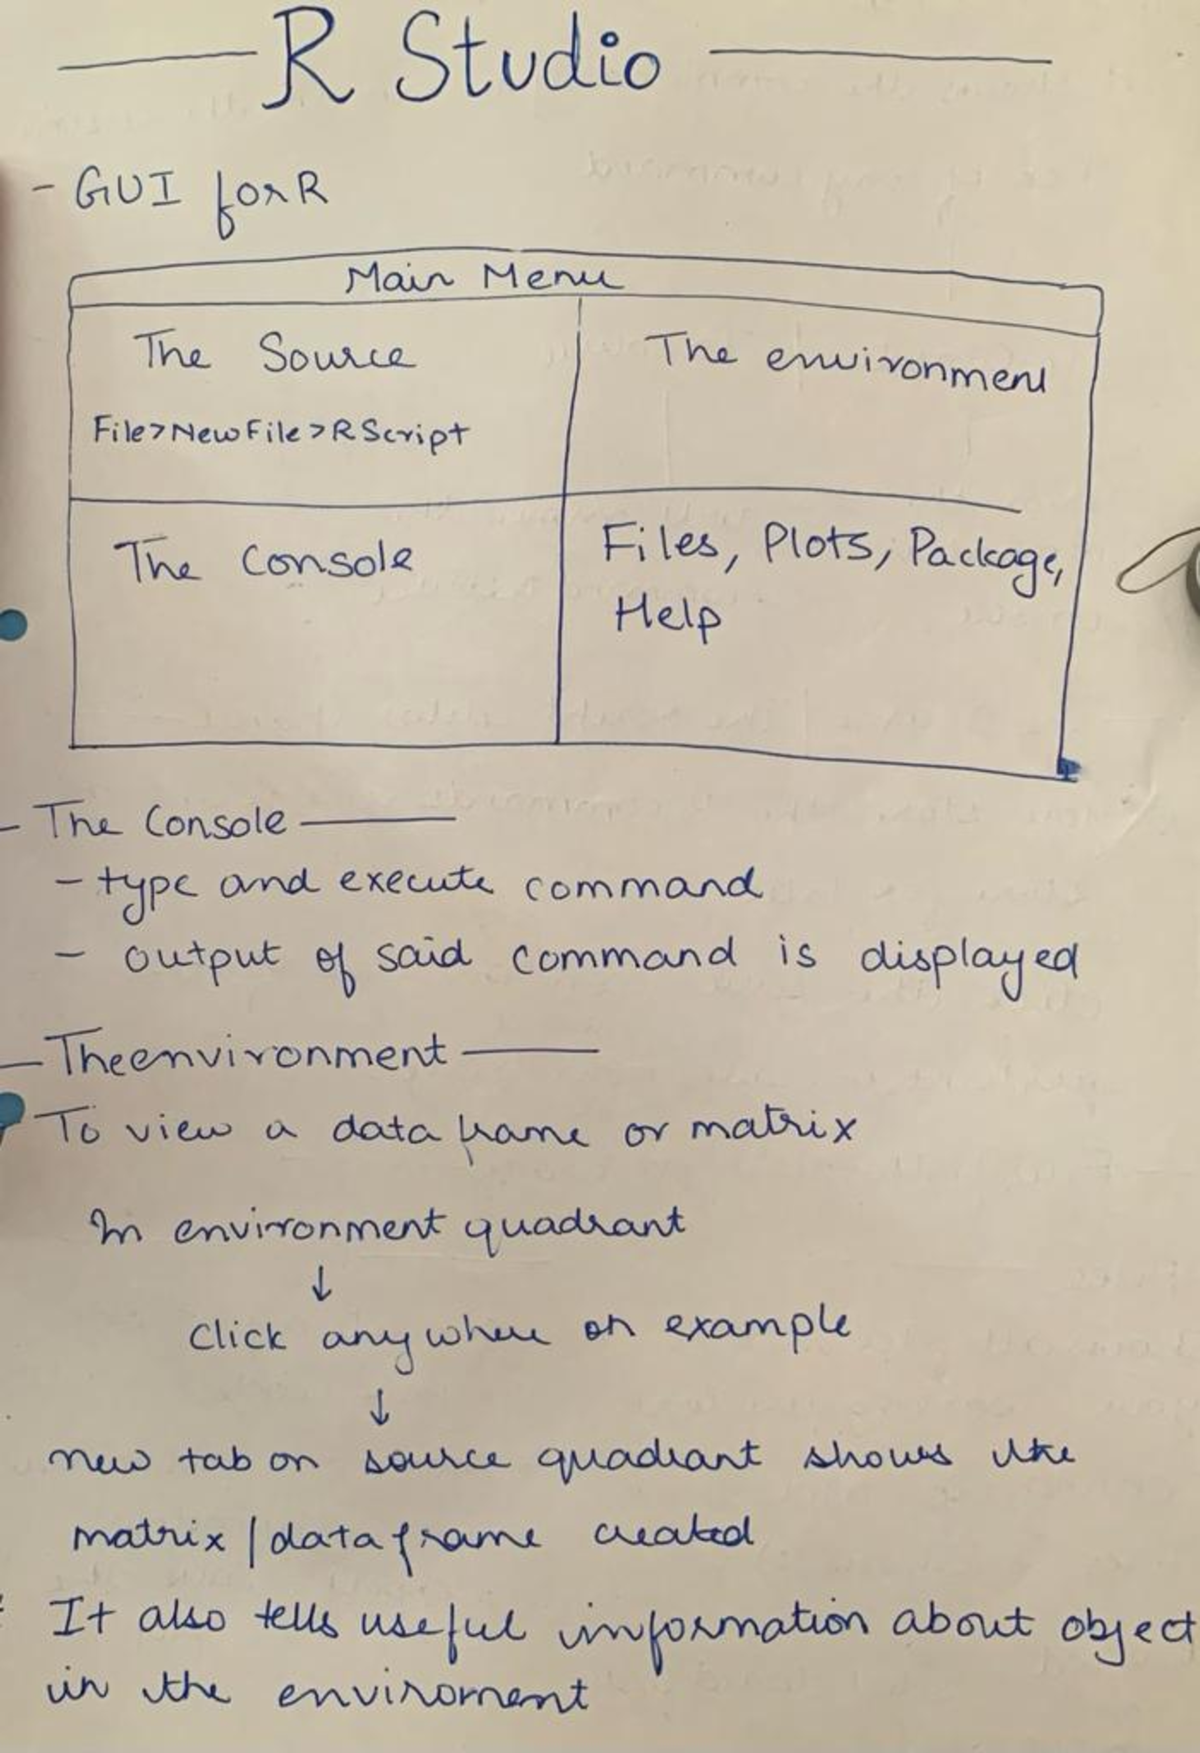 R Studio
- GUI for R
Main Menu
The Source
File>New File>R Script
The environment
The Console
Files, Plots, Package,
Help
- The Console
- type and execute command
- output of said command is displayed
- The environment
To view a data frame or matrix
In environment quadrant
↓
Click anywhere on example
↓
new tab on source quadrant shows the
matrix / data frame created
It also tells useful information about object
in the enviroment